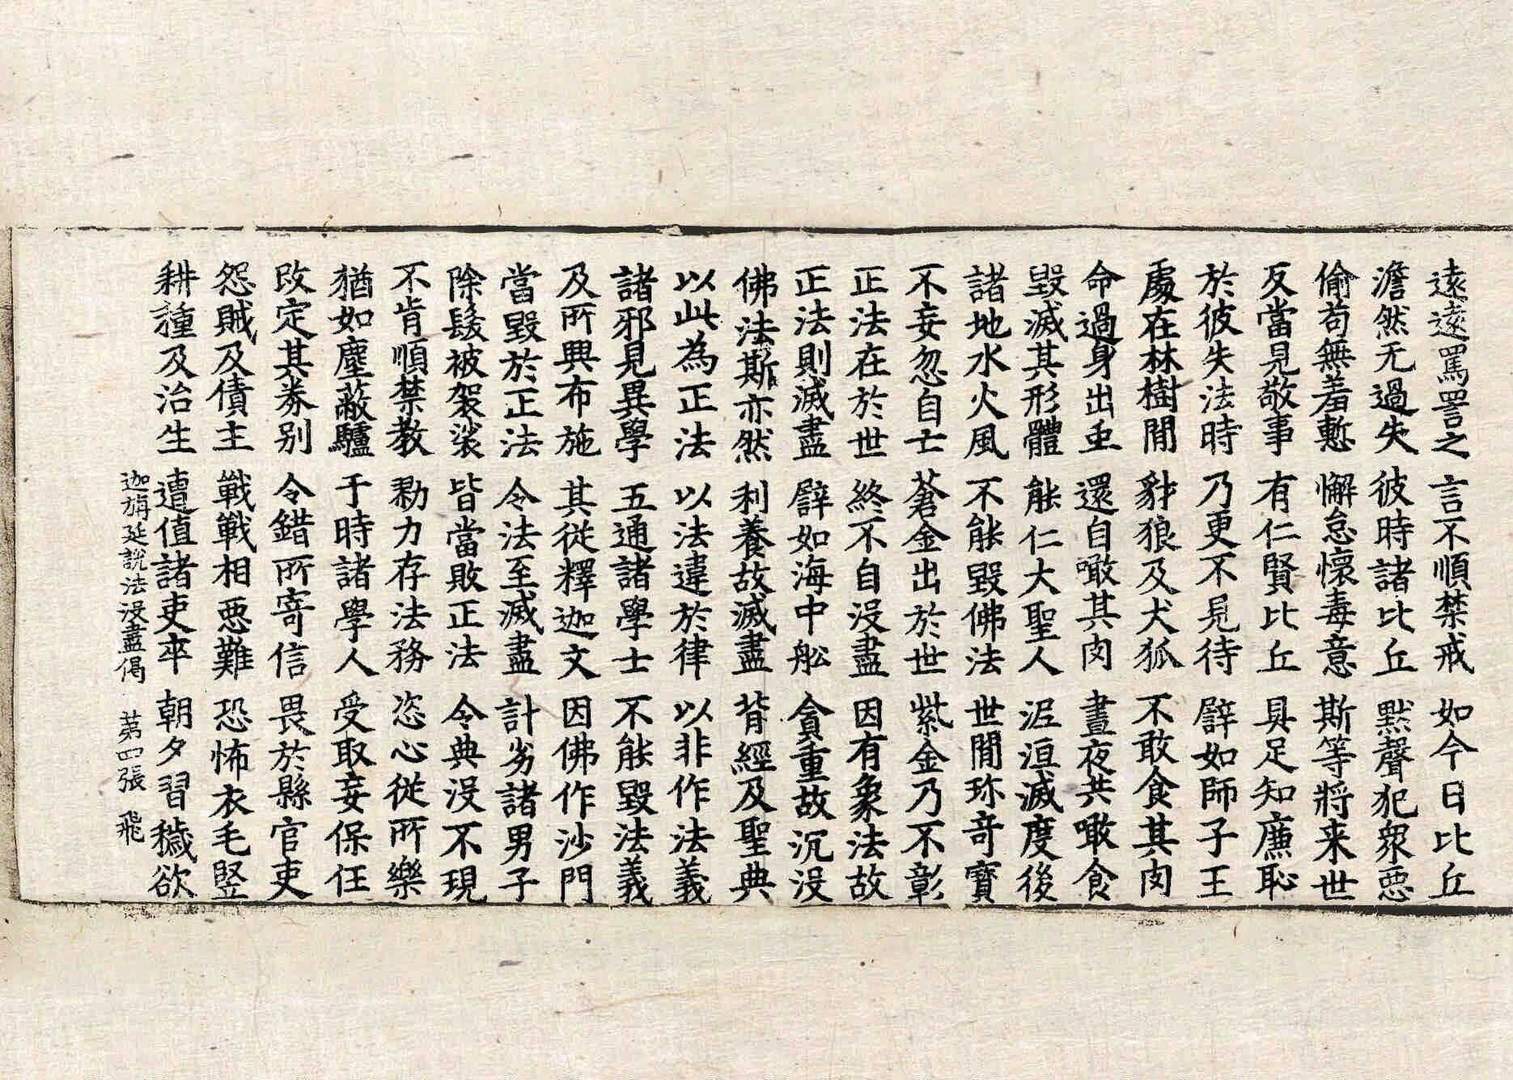 遠遠罵詈之 言不順禁戒 如今日比丘
澹然无過失 彼時諸比丘 默聲犯衆惡
偷苟無羞慙 懈怠懷毒意 斯等將来世
反當見敬事 有仁賢比丘 具足知廉恥
於彼失法時 乃更不見待 譬如師子王
處在林樹閒 豺狼及犬狐 不敢食其肉
命過身出虫 還自噉其肉 晝夜共噉食
毀滅其形體 能仁大聖人 泥洹滅度後
諸地水火風 不能毀佛法 世閒珎竒寶
不妄忽自亡 蒼金出於世 紫金乃不彰
正法在於世 終不自没盡 因有象法故
正法則滅盡 譬如海中舩 貪重故沉没
佛法斯亦然 利養故滅盡 背經及聖典
以此為正法 以法違於律 以非作法義
諸邪見異學 五通諸學士 不能毀法義
及所興布施 其從釋迦文 因佛作沙門
當毀於正法 令法至滅盡 計劣諸男子
除髮被袈裟 皆當敗正法 令典没不現
不肯順禁教 勠力存法務 恣心從所樂
猶如塵蔽驢 于時諸學人 受取妄保任
改定其券别 令錯所寄信 畏於縣官吏
怨賊及債主 戰戰相惡難 恐怖衣毛竪
耕種及治生 遭值諸吏卒 朝夕習穢欲
迦旃延說法没盡偈 第四張 飛